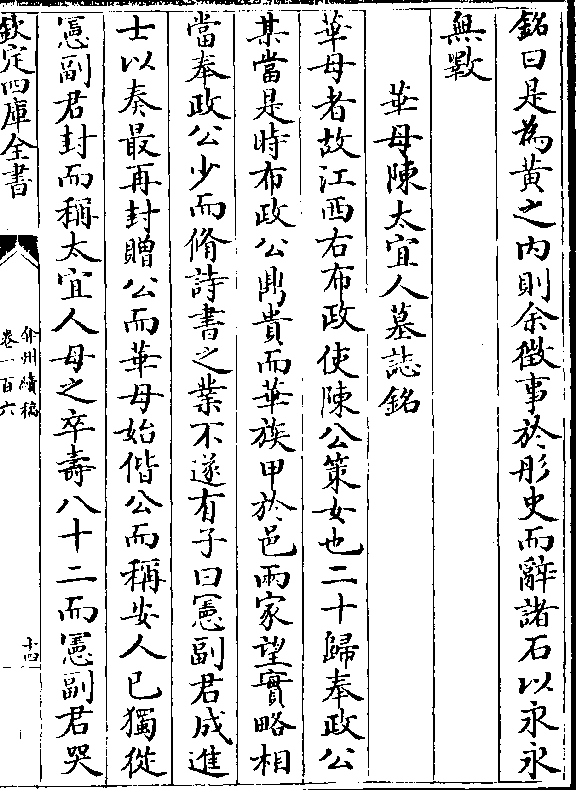 銘曰是為黄之内則余徵事於彤史而辭諸石以永永
無斁
華母陳太宜人墓誌銘
華母者故江西右布政使陳公策女也二十歸奉政公
某當是時布政公鼎貴而華族甲於邑兩家望實略相
當奉政公少而脩詩書之業不遂有子曰憲副君成進
士以奏最再封贈公而華母始偕公而稱安人已獨從
憲副君封而稱太宜人母之卒壽八十二而憲副君哭
欽定四庫全書
弇州續稿
卷一百六
十四